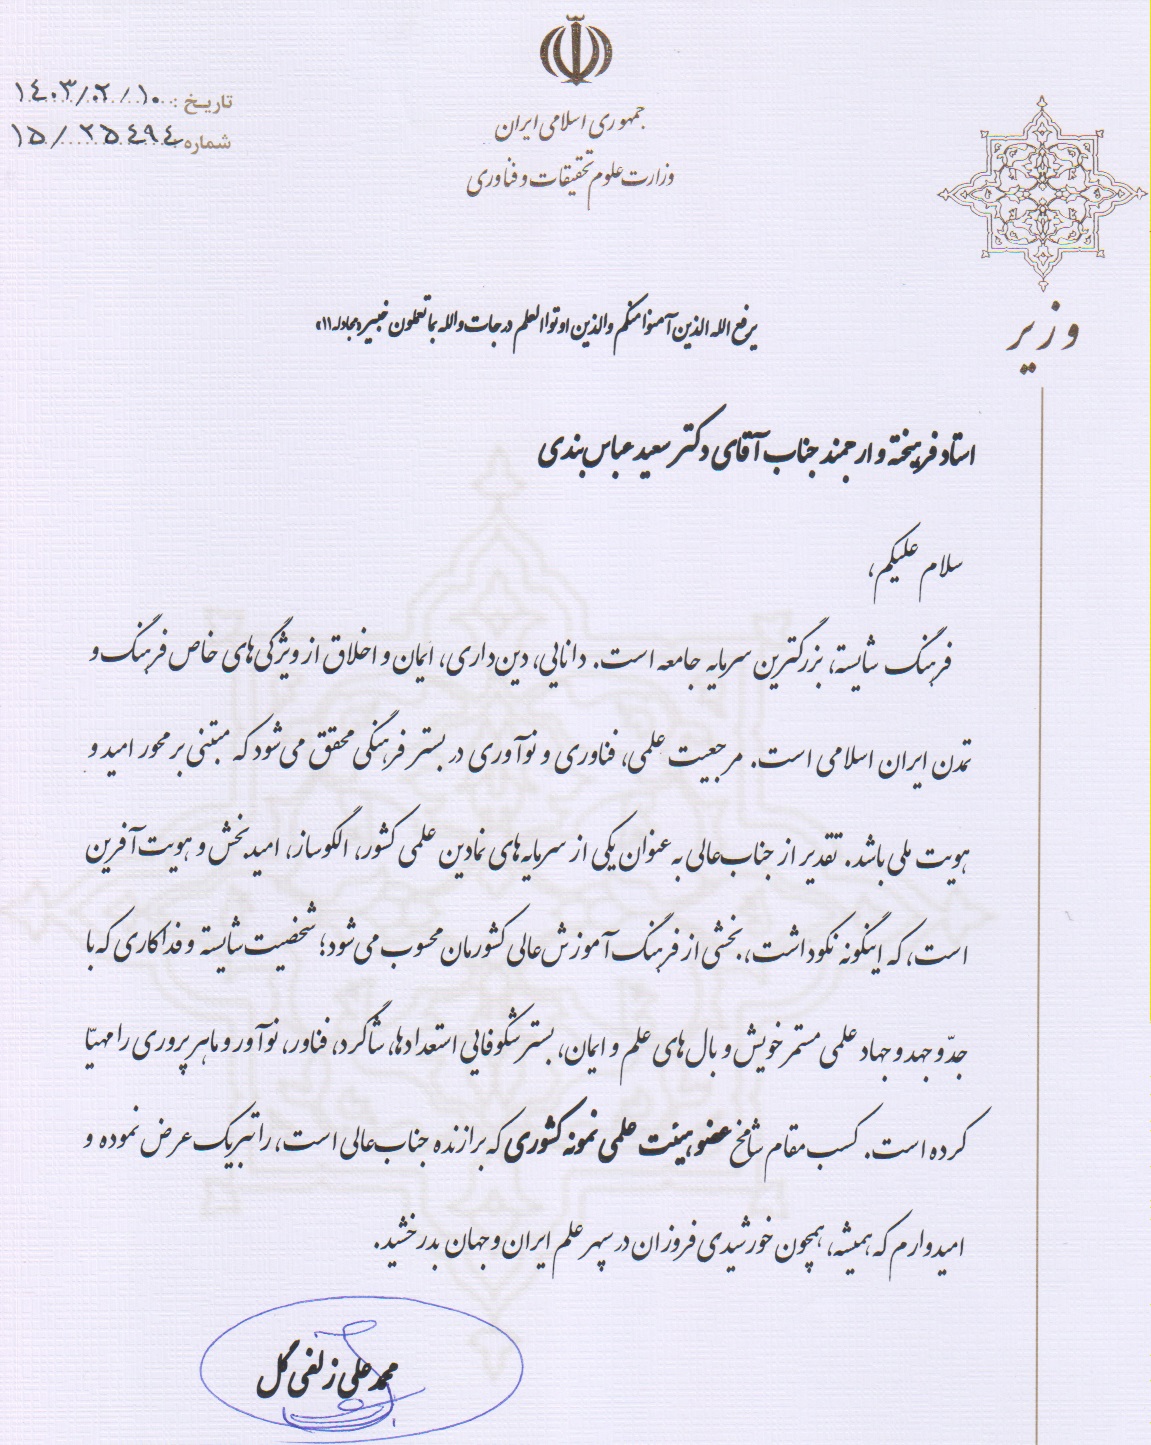 جمهوری اسلامی ایران
وزارت علوم تحقیقات و فناوری
تاریخ: ۱۴۰۳/۰۲/۱۰
شماره: ۱۵/۲۵۴۹۴
وزیر
یرفع الله الذین آمنوا منکم والذین اوتوا العلم درجات والله بما تعملون خبیر «مجادله ۱۱»
استاد فرهیخته و ارجمند جناب آقای دکتر سعید عباس‌بندی
سلام علیکم،
فرهنگ شایسته، بزرگترین سرمایه جامعه است. دانایی، دین‌داری، ایمان و اخلاق از ویژگی‌های خاص فرهنگ و
تمدن ایران اسلامی است. مرجعیت علمی، فناوری و نوآوری در بستر فرهنگی محقق می‌شود که مبتنی بر محور امید و
هویت ملی باشد. تقدیر از جناب‌عالی به عنوان یکی از سرمایه‌های نمادین علمی کشور، الگوساز، امیدبخش و هویت‌آفرین
است، که اینگونه نکوداشت، بخشی از فرهنگ آموزش عالی کشورمان محسوب می‌شود؛ شخصیت شایسته و فداکاری که با
جدّ و جهد و جهاد علمی مستمر خویش و بال‌های علم و ایمان، بستر شکوفایی استعدادها، شاگرد، فناور، نوآور و ماهر پروری را مهیّا
کرده است. کسب مقام شامخ عضو هیئت علمی نمونه کشوری که برازنده جناب‌عالی است، را تبریک عرض نموده و
امیدوارم که همیشه، همچون خورشیدی فروزان در سپهر علم ایران و جهان بدرخشید.
محمدعلی زلفی‌گل